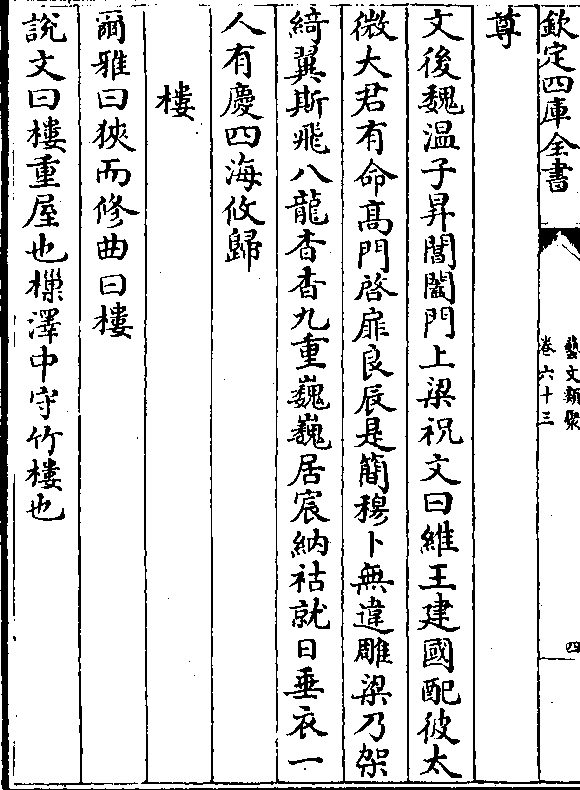 欽定四庫全書
藝文類聚
卷六十三
四
尊
文後魏温子昇閶闔門上梁祝文曰維王建國配彼太
微大君有命髙門啓扉良辰是簡穆卜無違雕梁乃架
綺翼斯飛八龍杳杳九重巍巍居宸納祜就日垂衣一
人有慶四海攸歸
樓
爾雅曰狹而修曲曰樓
説文曰樓重屋也樔澤中守竹樓也